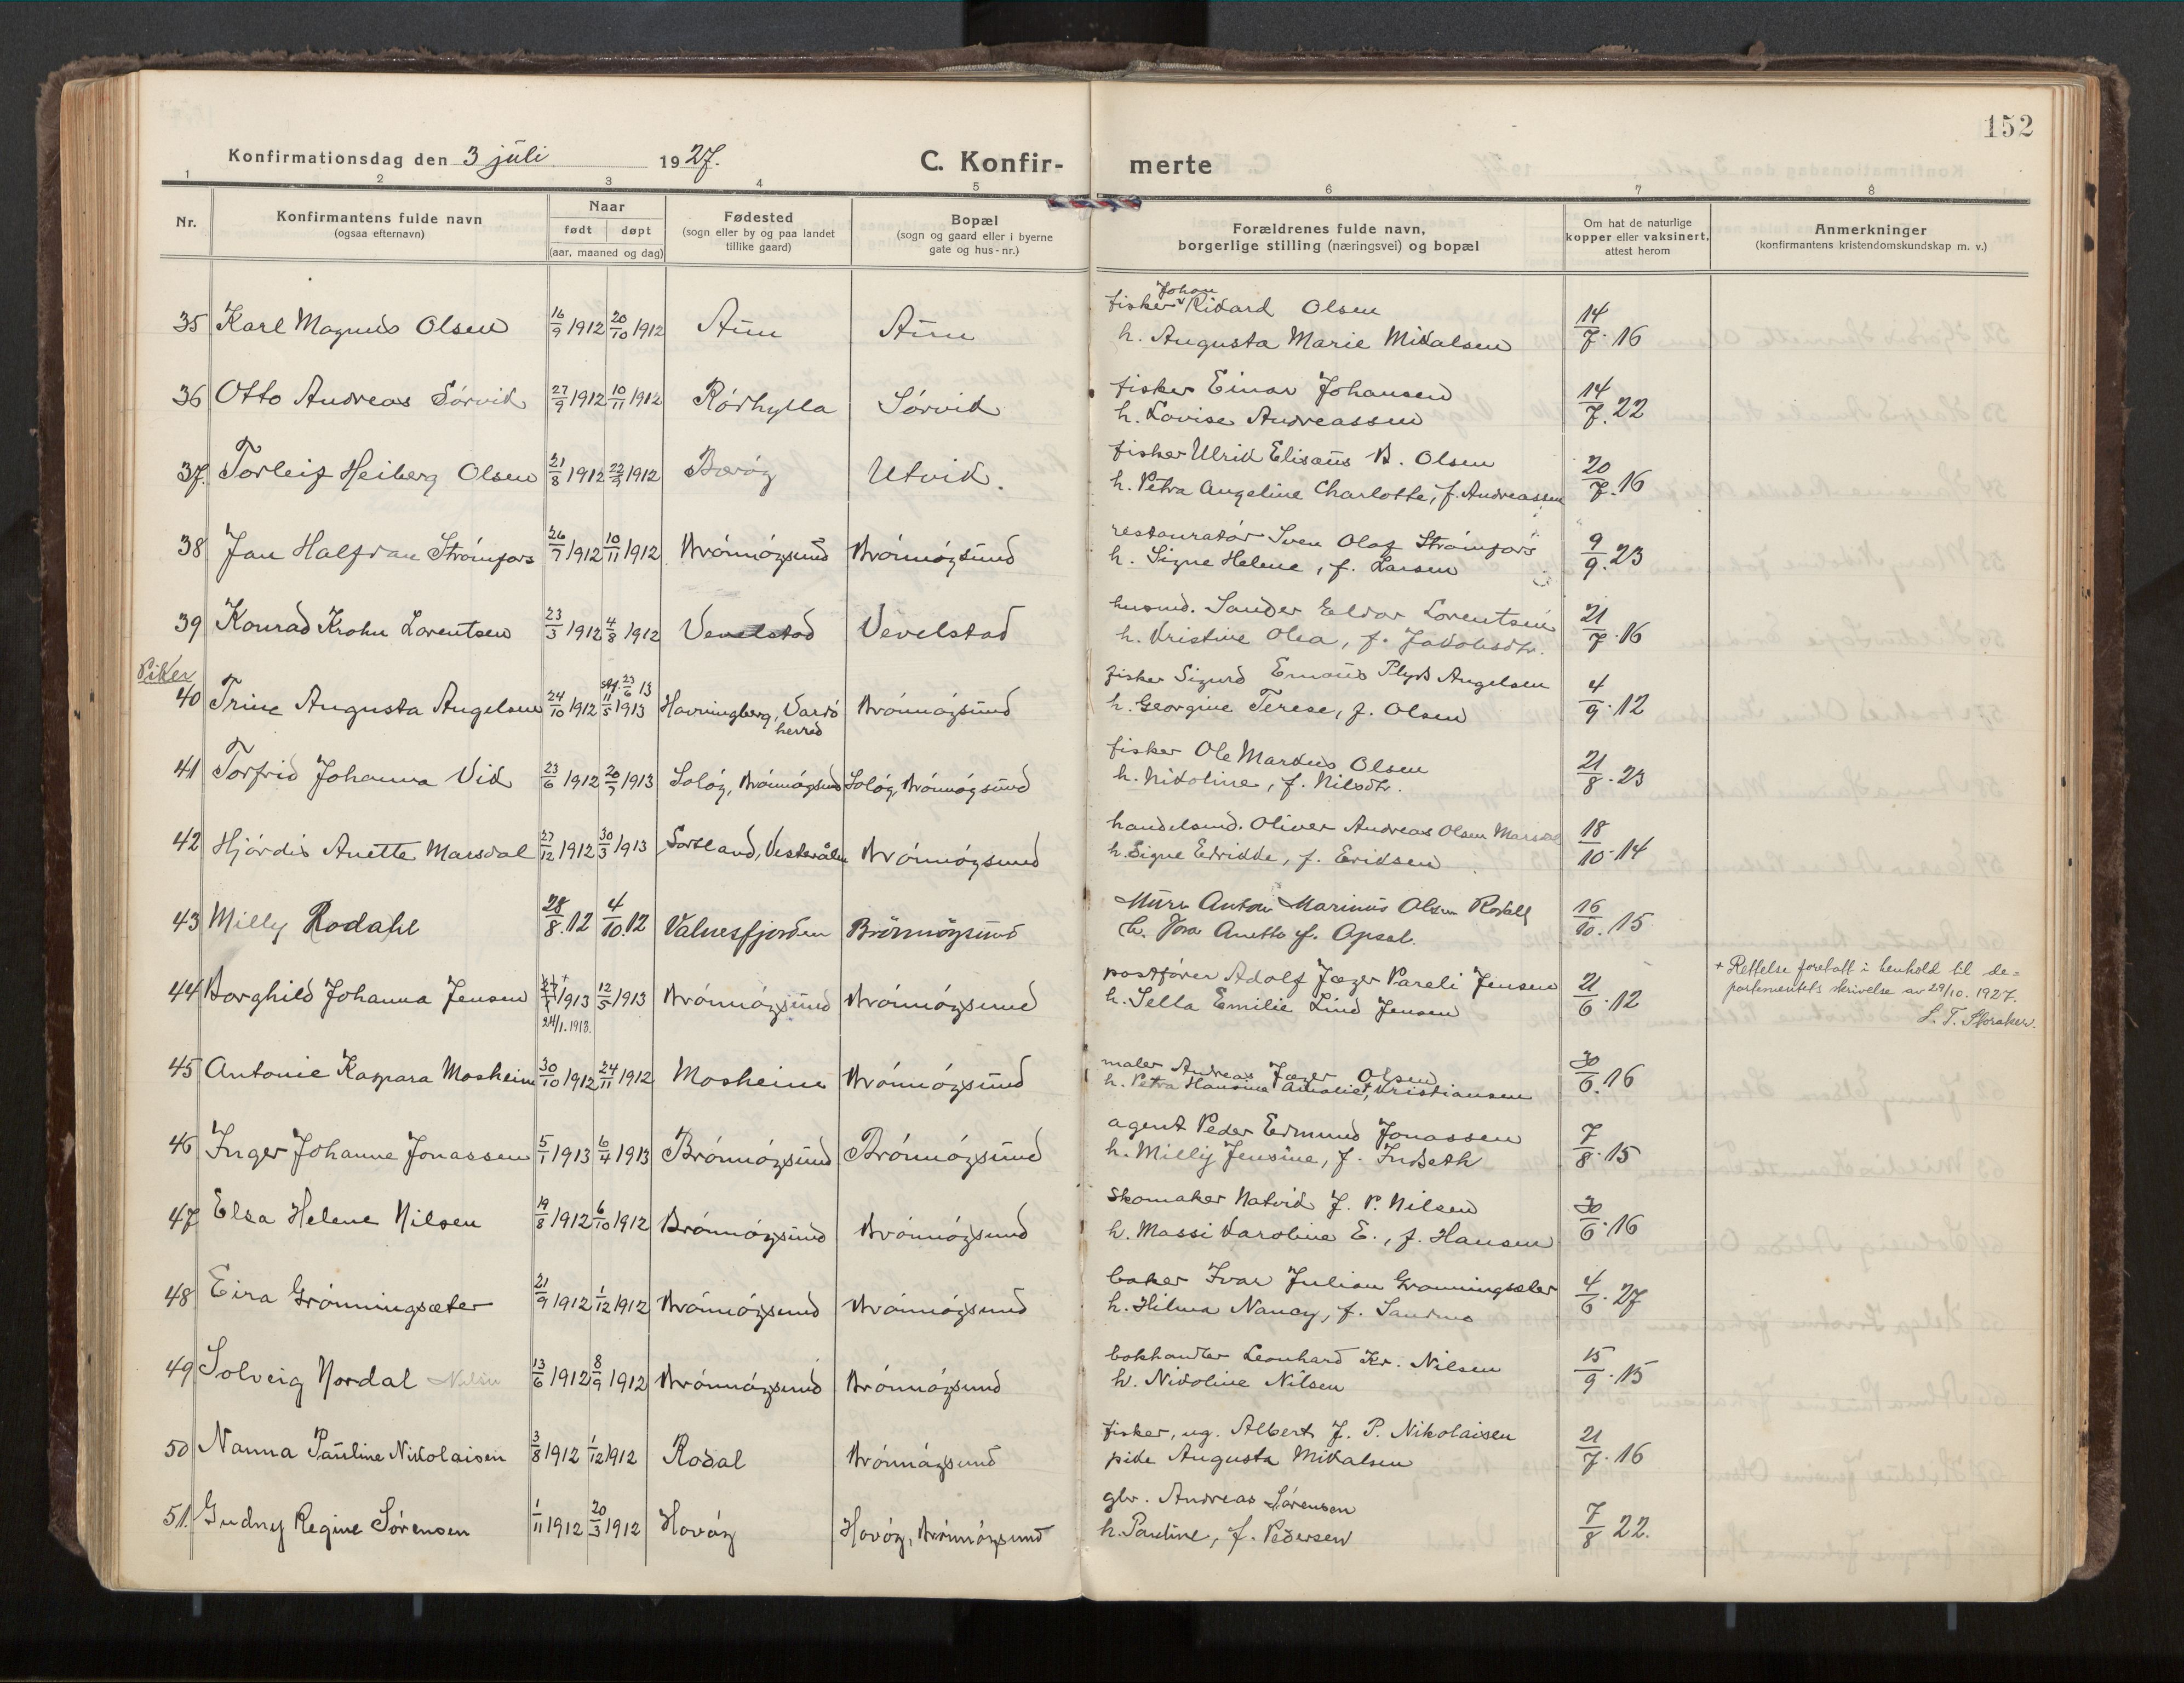 152
Konfirmationsdag den 3 juli 1927.
C. Konfir- merte
1 2 3 4 5 6 7 8
Nr.
Konfirmantens fulde navn
(ogsaa efternavn)
Naar
født døpt
(aar, maaned og dag)
Fødested
(sogn eller by og paa landet
tillike gaard)
Bopæl
(sogn og gaard eller i byerne
gate og hus-nr.)
Forældrenes fulde navn,
borgerlige stilling (næringsvei) og bopæl
Om hat de naturlige
kopper eller vaksinert,
attest herom
Anmerkninger
(konfirmantens kristendomskundskap m. v.)
35 Karl Magnus Olsen 16/9 1912 20/10 1912 fisker Johan Rikard Olsen 14/7.16
h. Augusta Marie Mikalsen
36 Otto Andreas Sörvik 27/9 1912 10/11 1912 Rörhylla Sörvik fisker Einar Johansen 14/7.22
h. Lovise Andreassen
37. Torleif Heiberg Olsen 21/8 1912 1912 Utvik. fisker Ulrik Elisæus B. Olsen 20/7.16
h. Petra Angeline Charlotte, f. Andreassen
38 Jan Halfdan Strömfors 26/7 1912 10/11 1912 Brönnöysund Brönnöysund restauratör Sven Olaf Strömfors 9/9.23
h. Signe Helene, f. Larsen
39 Konrad Krohn Lorentsen 23/3 1912 4/8 1912 Vevelstad Vevelstad husmd. Sander Eldor Lorentsen 21/7.16
h. Kristine Olea, f. Jakobsdtr.
Piker
40 Trine Augusta Angelsen 24/10 1912 stf. 23/6 13 11/5 1913 Havningberg, Vardö herred Brönnöysund fisker Sigurd Emaus Plyds Angelsen 4/9.12
h. Georgine Terese, f. Olsen
41 Torfrid Johanna Vik 23/6 1912 20/7 1913 Solöy, Brönnöysund Solöy, Brönnöysund fisker Ole Markus Olsen 21/8.23
h. Nikoline, f. Nilsdtr.
42 Hjördis Anette Marsdal 27/12 1912 30/3 1913 Sortland, Vesterålen Brönnöysund handelsmd. Oliver Andreas Olsen Marsdal 18/10.14
h. Signe Edrikke, f. Eriksen
43 Milly Rodahl 28/8.12 4/10.12 Valnesfjorden Brönnöysund Murer Anton Marinus Olsen Rodahl 16/10.15
h. Anette f. Opsal.
44 Borghild Johanna Jensen 27/1+ 1913 12/5 1913 Brönnöysund Brönnöysund postförer Adolf Jæger Pareli Jensen 21/6.12
24/1.1913. h. Sella Emilie Lind Jensen
+ Rettelse foretatt i henhold til de=
partementets skrivelse av 29/10.1927.
S. T. Storaker.
45 Antonie Kaspara Mosheim 30/10 1912 24/11 1912 Mosheim Brönnöysund maler Andreas Jæger Olsen 30/6.16
h. Petra Hansine Amalie f. Kristiansen
46 Inger Johanne Jonassen 5/1 1913 6/4 1913 Brönnöysund Brönnöysund agent Peder Edmund Jonassen 7/8.15
h. Milly Jensine, f. Indseth
47 Elsa Helene Nilsen 19/8 1912 6/10 1912 Brönnöysund Brönnöysund skomaker Hatvid J. P. Nilsen 30/6.16
h. Massi Karoline E., f. Hansen
48 Eira Grönningsæter 21/9 1912 1/12 1912 Brönnöysund Brönnöysund baker Ivar Julian Grønningsæter 4/6.27
h. Hilma Nancy, f. Sandmo
49 Solveig Nordal Nilsen 13/6 1912 8/9 1912 Brönnöysund Brönnöysund bokhandler Leonhard Kr. Nilsen 15/9.15
h. Nikoline Nilsen
50 Nanna Pauline Nikolaisen 3/8 1912 1/12 1912 Rodal Brönnöysund fisker, ug. Albert J. P. Nikolaisen 21/7.16
pike Augusta Mikalsen
51. Gudny Regine Sörensen 1/11 1912 20/3 1912 Havöy Havöy, Brönnöysund gbr. Andreas Sörensen 7/8 22.
h. Pauline, f. Pedersen